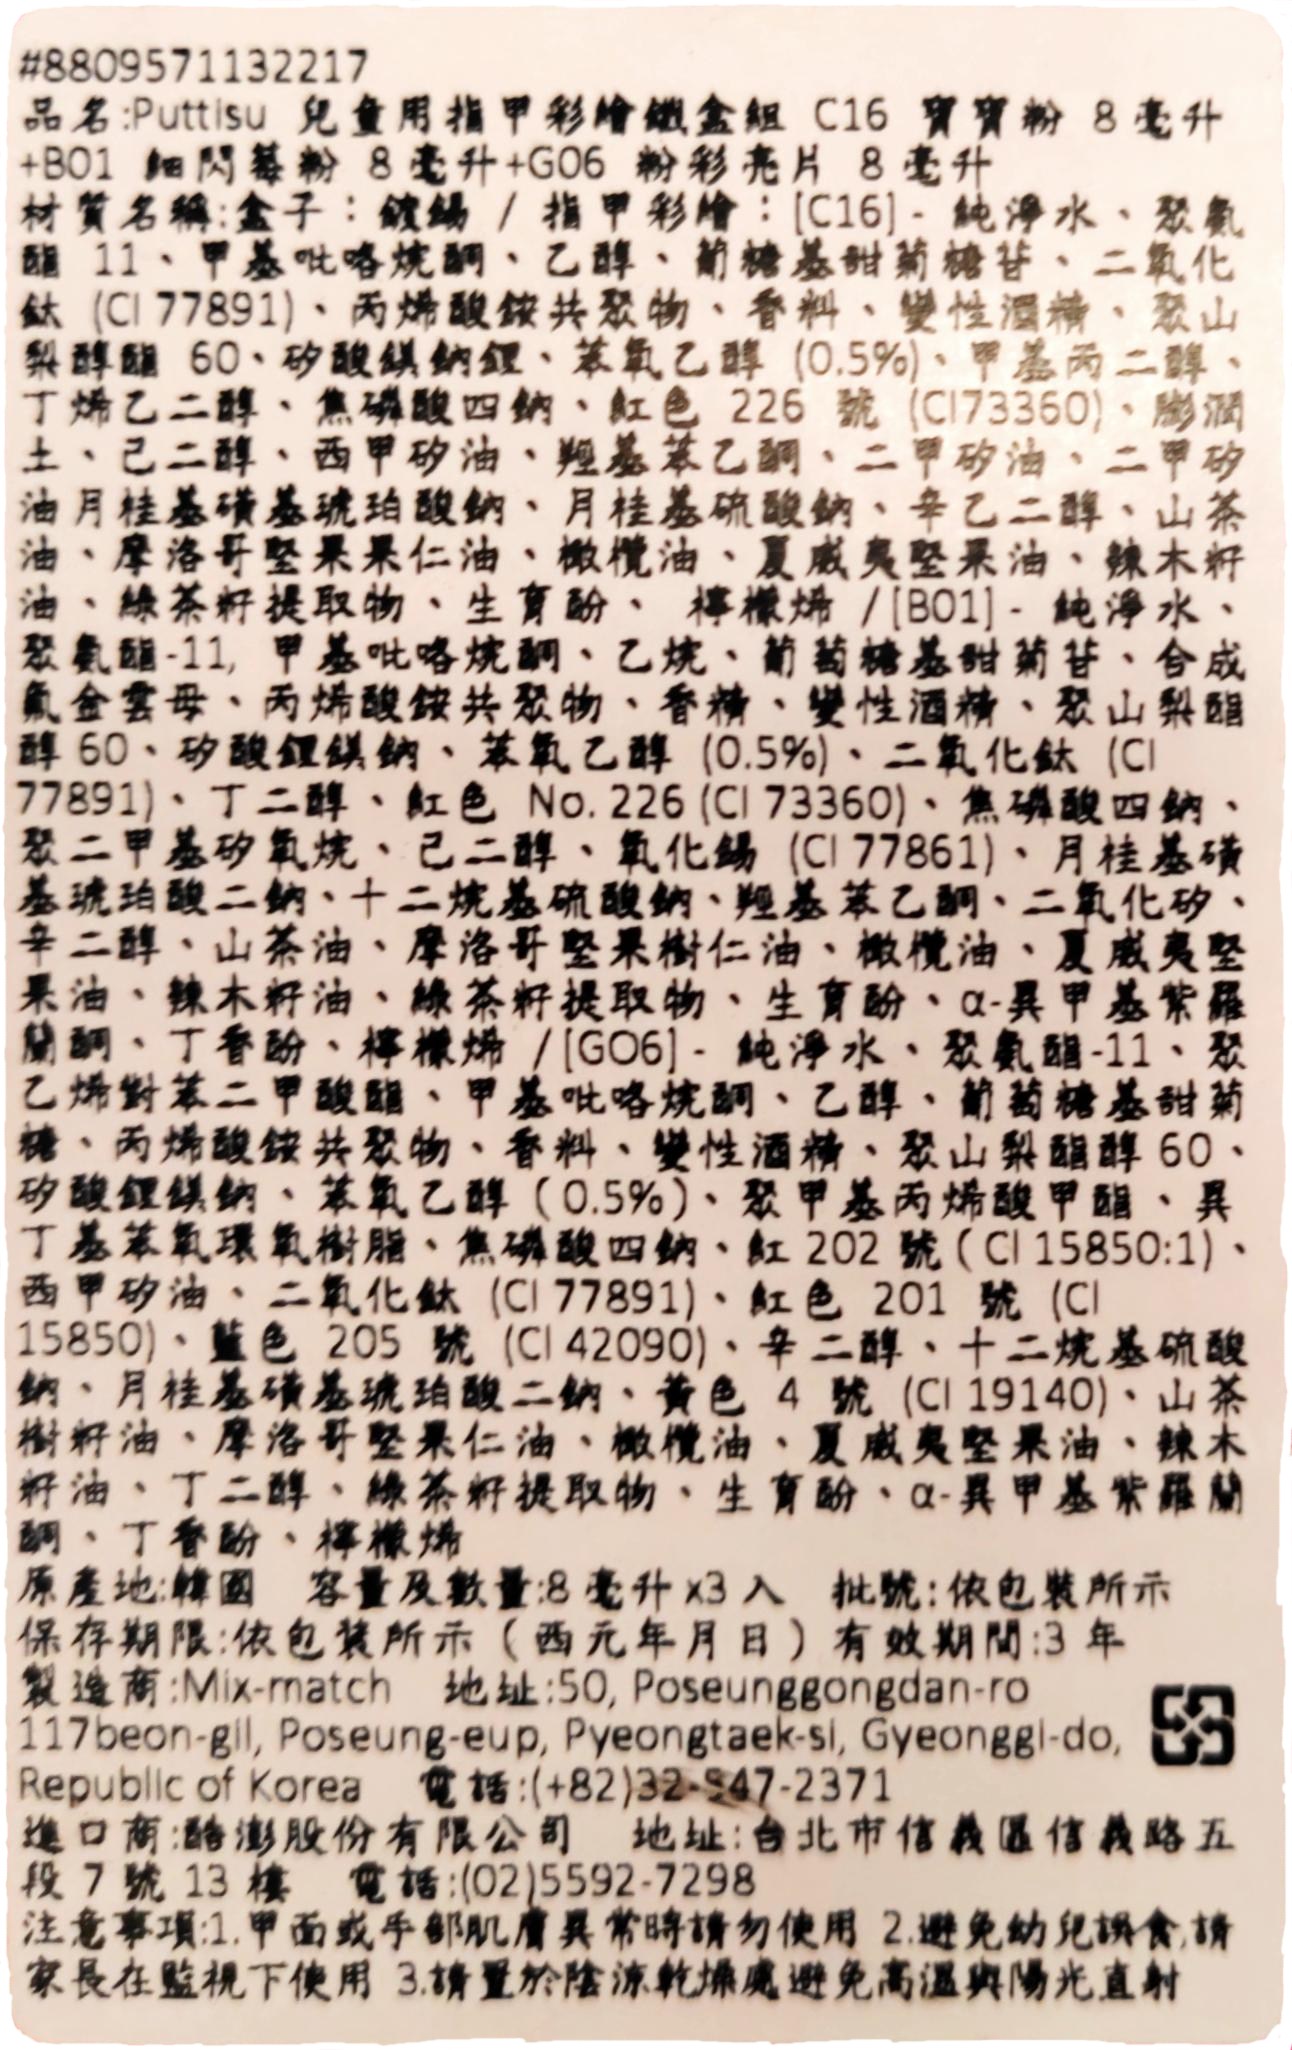 #8809571132217
品名:Puttisu 兒童用指甲彩繪鐵盒組 C16 寶寶粉 8 毫升
+B01 細閃莓粉 8 毫升+G06 粉彩亮片 8 毫升
材質名稱:盒子：鍍錫 / 指甲彩繪：[C16]- 純淨水、聚氨
酯 11、甲基吡咯烷酮、乙醇、葡糖基甜菊糖苷、二氧化
鈦 (CI 77891)、丙烯酸銨共聚物、香料、變性酒精、聚山
梨醇酯 60、矽酸鎂鈉鋰、苯氧乙醇 (0.5%)、甲基丙二醇、
丁烯乙二醇、焦磷酸四鈉、紅色 226 號 (CI73360)、膨潤
土、己二醇、西甲矽油、羥基苯乙酮、二甲矽油、二甲矽
油月桂基磺基琥珀酸鈉、月桂基硫酸鈉、辛乙二醇、山茶
油、摩洛哥堅果果仁油、橄欖油、夏威夷堅果油、辣木籽
油、綠茶籽提取物、生育酚、 檸檬烯 /[B01]- 純淨水、
聚氨酯-11, 甲基吡咯烷酮、乙烷、葡萄糖基甜菊苷、合成
氟金雲母、丙烯酸銨共聚物、香精、變性酒精、聚山梨酯
醇 60、矽酸鋰鎂鈉、苯氧乙醇 (0.5%)、二氧化鈦 (CI
77891)、丁二醇、紅色 No. 226 (CI 73360)、焦磷酸四鈉、
聚二甲基矽氧烷、己二醇、氧化錫 (CI 77861)、月桂基磺
基琥珀酸二鈉、十二烷基硫酸鈉、羥基苯乙酮、二氧化矽、
辛二醇、山茶油、摩洛哥堅果樹仁油、橄欖油、夏威夷堅
果油、辣木籽油、綠茶籽提取物、生育酚、α-異甲基紫羅
蘭酮、丁香酚、檸檬烯 /[GO6]- 純淨水、聚氨酯-11、聚
乙烯對苯二甲酸酯、甲基吡咯烷酮、乙醇、葡萄糖基甜菊
糖、丙烯酸銨共聚物、香料、變性酒精、聚山梨酯醇 60、
矽酸鋰鎂鈉、苯氧乙醇 ( 0.5%)、聚甲基丙烯酸甲酯、異
丁基苯氧環氧樹脂、焦磷酸四鈉、紅 202 號 ( CI 15850:1)、
西甲矽油、二氧化鈦 (CI 77891)、紅色 201 號 (CI
15850)、藍色 205 號 (CI 42090)、辛二醇、十二烷基硫酸
鈉、月桂基磺基琥珀酸二鈉、黃色 4 號 (CI 19140)、山茶
樹籽油、摩洛哥堅果仁油、橄欖油、夏威夷堅果油、辣木
籽油、丁二醇、綠茶籽提取物、生育酚、α-異甲基紫羅蘭
酮、丁香酚、檸檬烯
原產地:韓國 容量及數量:8 毫升 x3 入 批號:依包裝所示
保存期限:依包裝所示（西元年月日）有效期間:3 年
製造商:Mix-match 地址:50, Poseunggongdan-ro
117beon-gil, Poseung-eup, Pyeongtaek-si, Gyeonggi-do,
Republic of Korea 電話:(+82)32-547-2371
進口商:酷澎股份有限公司 地址:台北市信義區信義路五
段 7 號 13 樓 電話:(02)5592-7298
注意事項:1.甲面或手部肌膚異常時請勿使用 2.避免幼兒誤食,請
家長在監視下使用 3.請置於陰涼乾燥處避免高溫與陽光直射